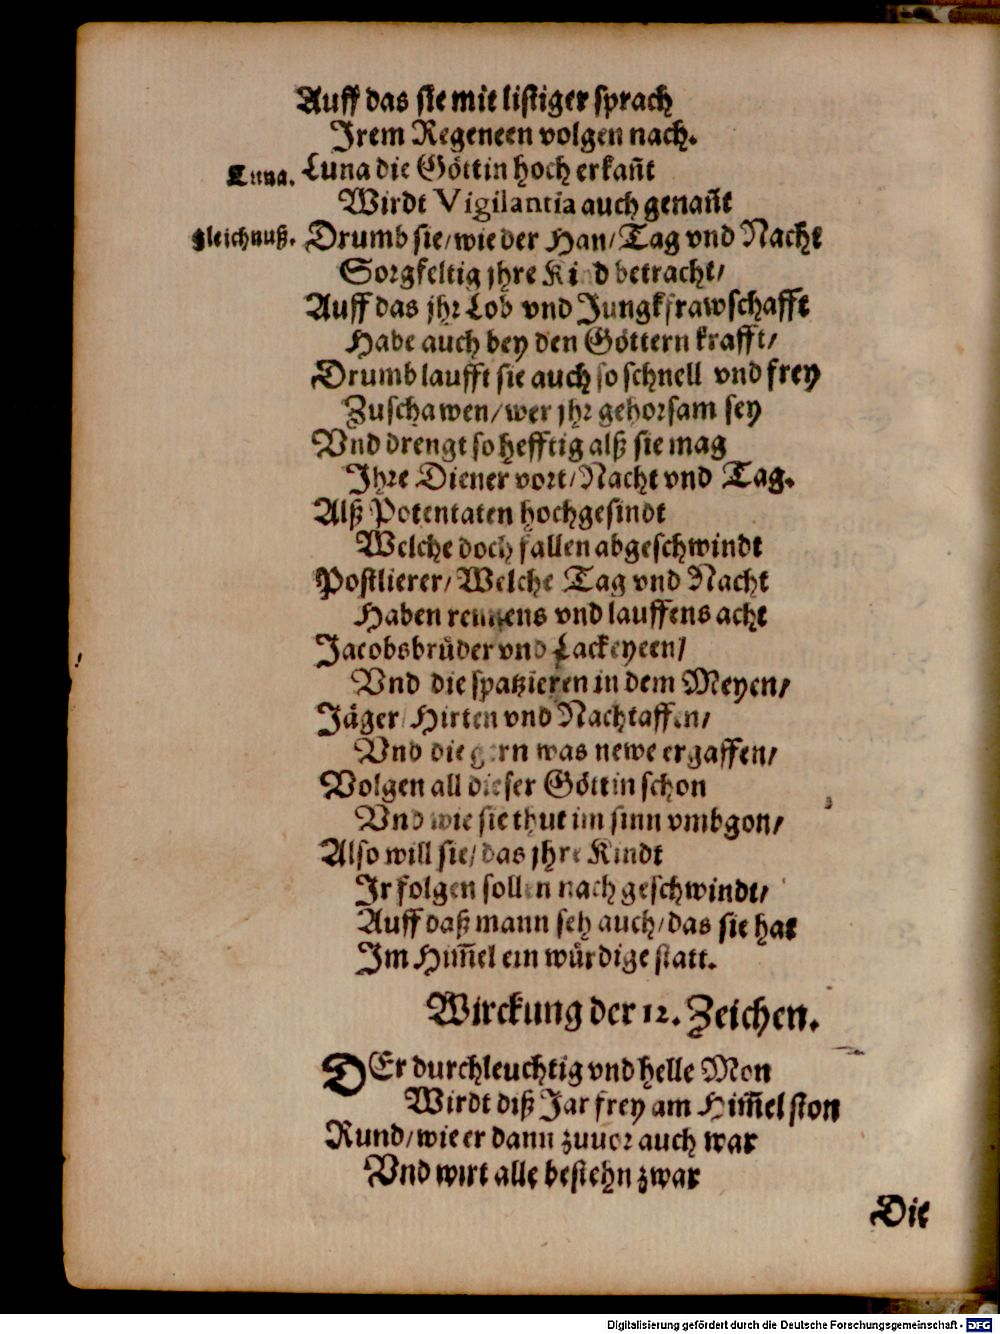 Auff das sie mit listiger sprach
Irem Regenten volgen nach.
Luna. Luna die Göttin hoch erkañt
Wirdt Vigilantia auch genañt
gleichnuß. Drumb sie/ wie der Han/ Tag vnd Nacht
Sorgfeltig jhre Kind betracht/
Auff das jhr Lob vnd Jungkfrawschafft
Habe auch bey den Göttern krafft/
Drumb laufft sie auch so schnell vnd frey
Zuschawen/ wer jhr gehorsam sey
Vnd drengt so hefftig alß sie mag
Ihre Diener vort/ Nacht vnd Tag.
Alß Potentaten hochgesindt
Welche doch fallen abgeschwindt
Postlierer/ Welche Tag vnd Nacht
Haben rennens vnd lauffens acht
Jacobsbrüder vnd Lackeyeen/
Vnd die spatzieren in dem Meyen/
Jäger/ Hirten vnd Nachtaffen/
Vnd die gern was newe ergaffen/
Volgen all dieser Göttin schon
Vnd wie sie thut im sinn vmbgon/
Also will sie/ das jhre Kindt
Ir folgen sollen nach geschwindt/
Auff daß mann seh auch/ das sie hat
Im Him̃el ein würdige statt.
Wirckung der 12. Zeichen.
DEr durchleuchtig vnd helle Mon
Wirdt diß Jar frey am Him̃el ston
Rund/ wie er dann zuuor auch war
Vnd wirt alle bestehn zwar
Die
Digitalisierung gefördert durch die Deutsche Forschungsgemeinschaft - DFG